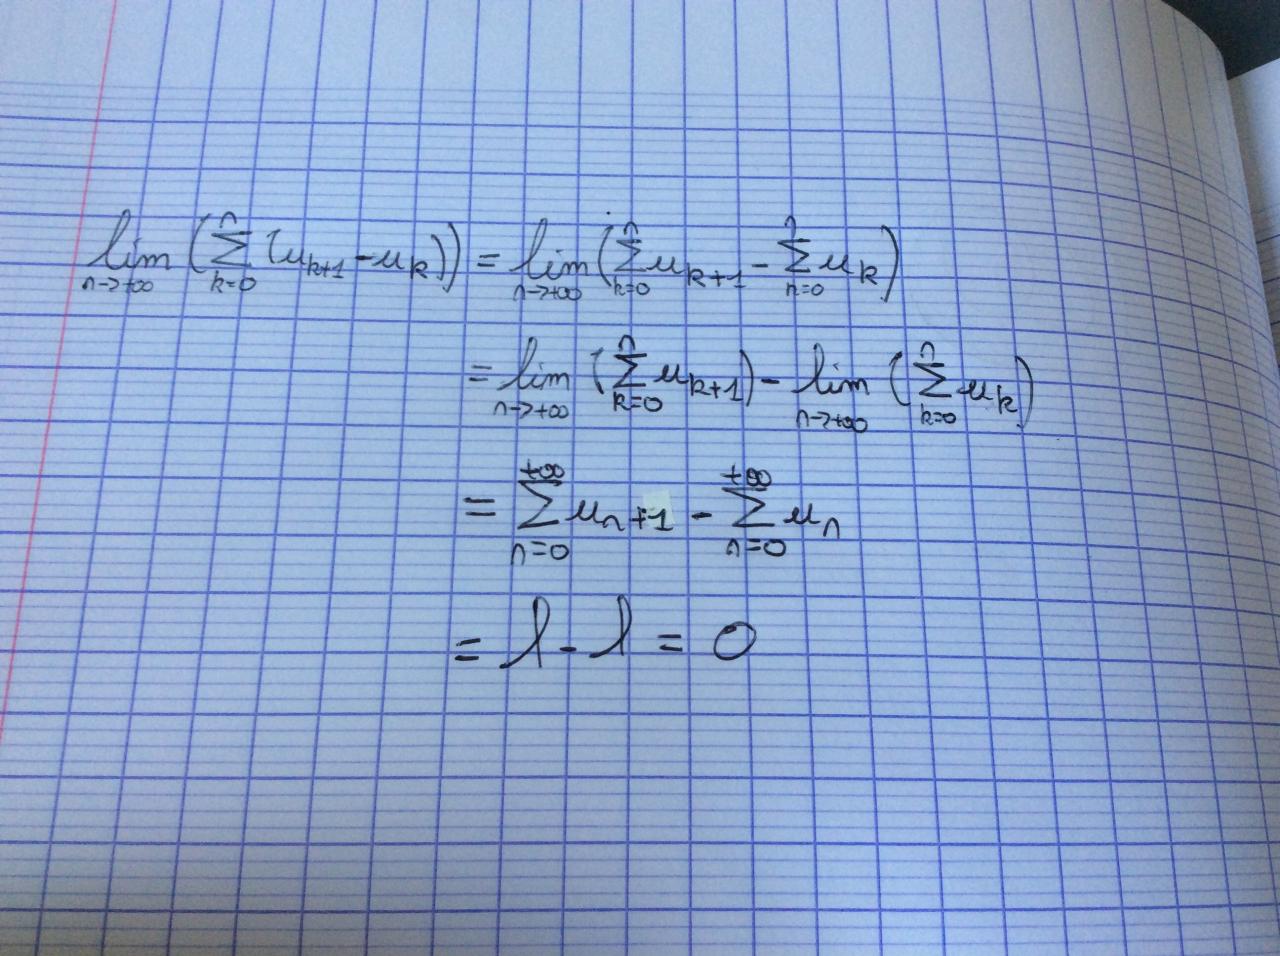 lim n→+∞ (∑ k=0 n (u_{k+1} - u_k)) = lim n→+∞ (∑ k=0 n u_{k+1} - ∑ n=0 n u_k)
= lim n→+∞ (∑ k=0 n u_{k+1}) - lim n→+∞ (∑ k=0 n u_k)
= ∑ n=0 +∞ u_{n+1} - ∑ n=0 +∞ u_n
= l - l = 0